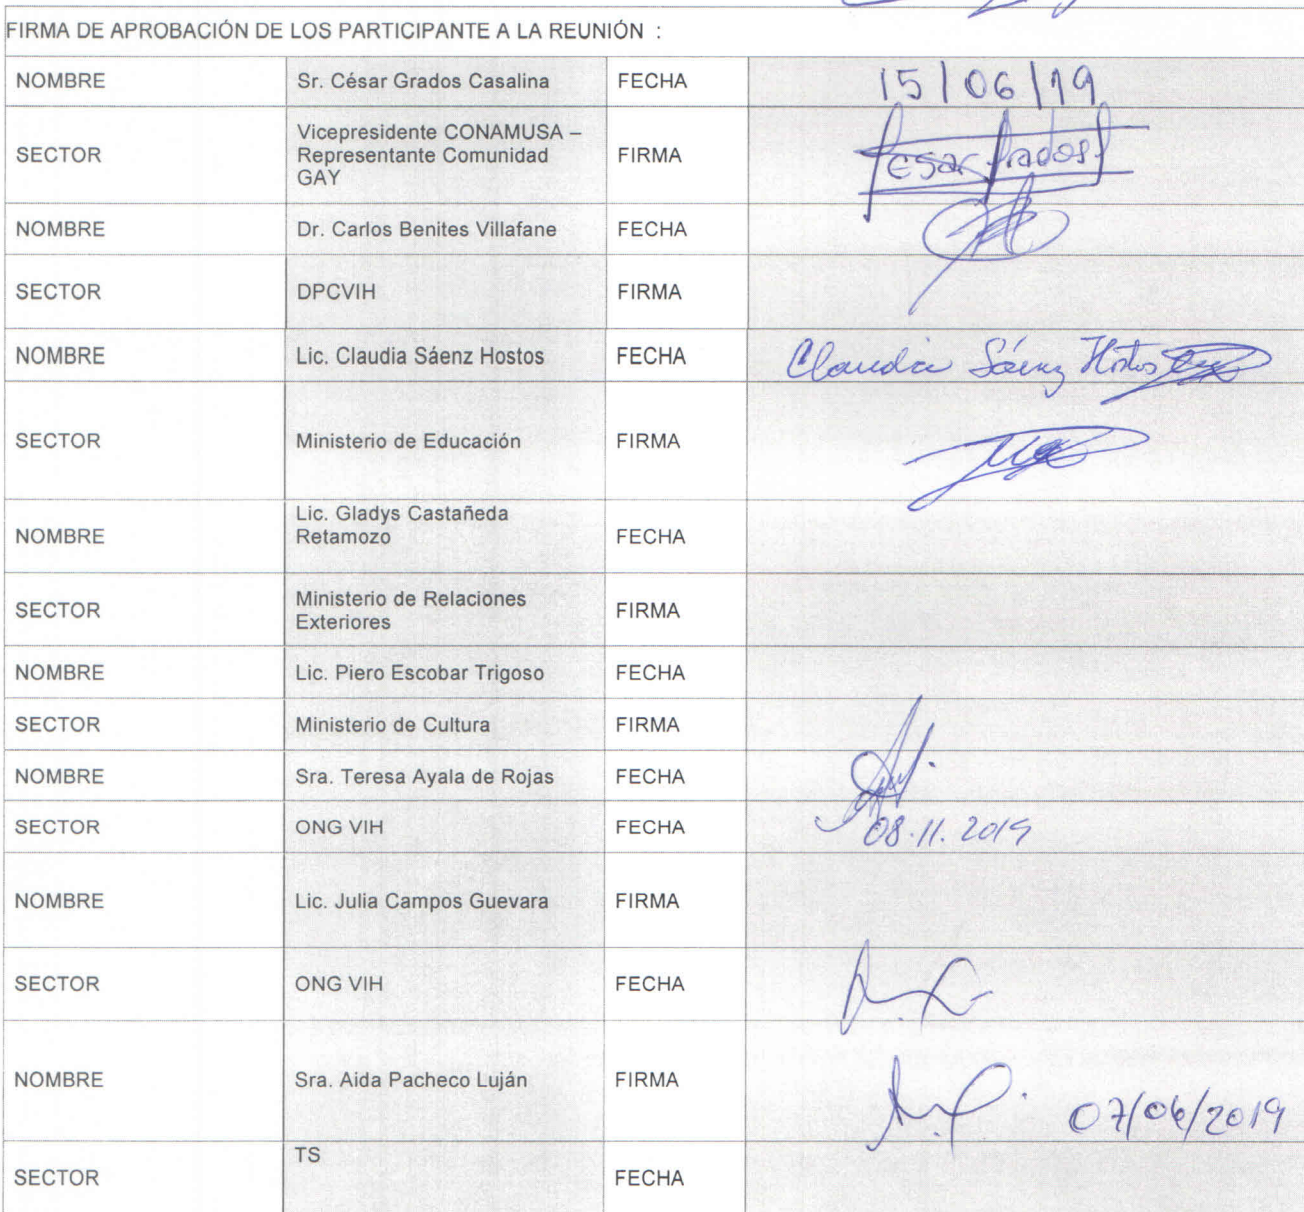 FIRMA DE APROBACIÓN DE LOS PARTICIPANTE A LA REUNIÓN :
NOMBRE Sr. César Grados Casalina FECHA 15/06/19
SECTOR Vicepresidente CONAMUSA –
Representante Comunidad
GAY FIRMA Cesar Grados
NOMBRE Dr. Carlos Benites Villafane FECHA
SECTOR DPCVIH FIRMA
NOMBRE Lic. Claudia Sáenz Hostos FECHA Claudia Sáenz Hostos
SECTOR Ministerio de Educación FIRMA
NOMBRE Lic. Gladys Castañeda
Retamozo FECHA
SECTOR Ministerio de Relaciones
Exteriores FIRMA
NOMBRE Lic. Piero Escobar Trigoso FECHA
SECTOR Ministerio de Cultura FIRMA
NOMBRE Sra. Teresa Ayala de Rojas FECHA
SECTOR ONG VIH FECHA 08.11.2019
NOMBRE Lic. Julia Campos Guevara FIRMA
SECTOR ONG VIH FECHA
NOMBRE Sra. Aida Pacheco Luján FIRMA 07/06/2019
SECTOR TS FECHA